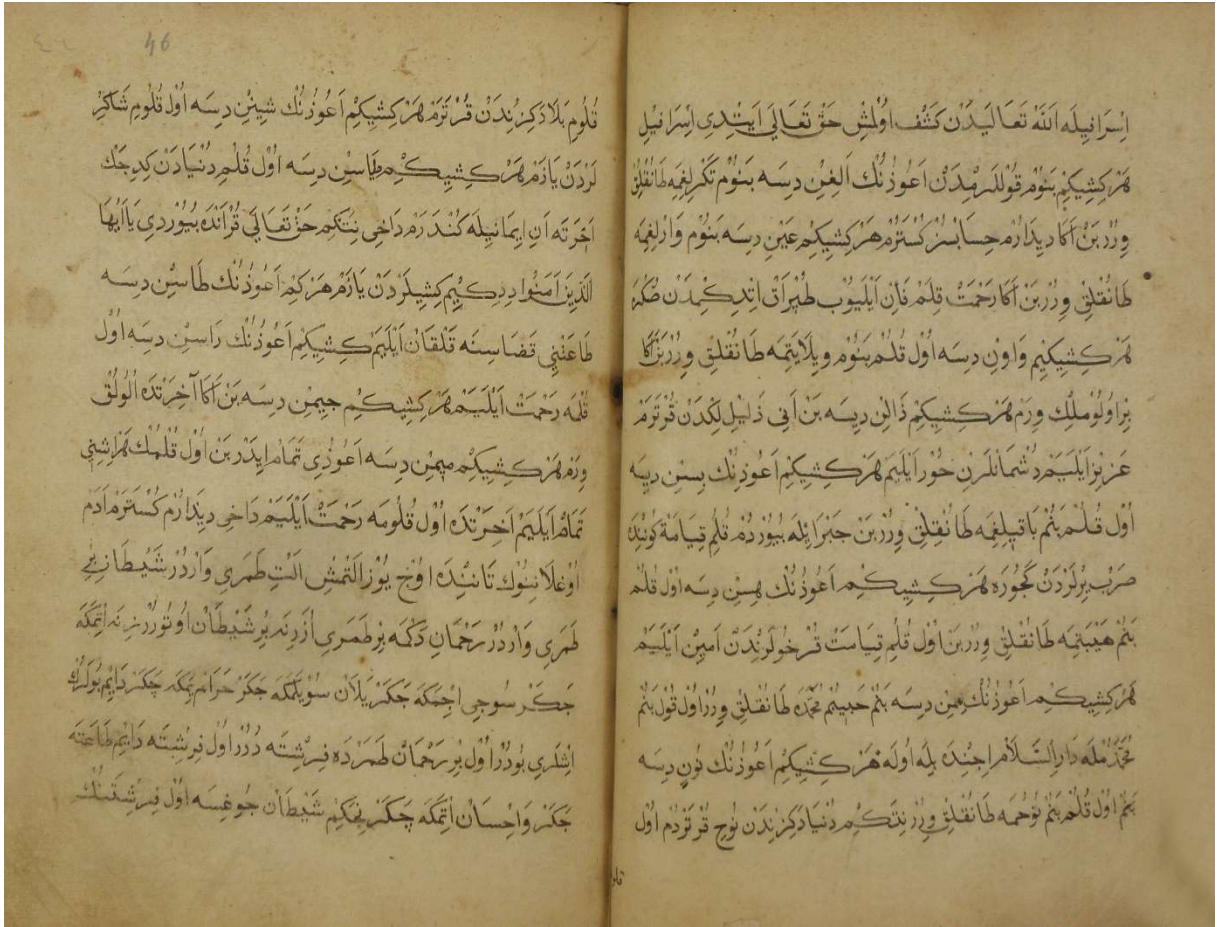 اِسْرَافِيلَه اللّٰه تَعَالَيدَنْ كَشْف اُولْمِشْ حَقْ تَعَالَى اَيِتْدِى اِسْرَافِيل
هَرْ كِشِيكِمْ بَنُومْ قُولْلَرُمْدَنْ اَعُوذُنُكْ اَلِفِنْ دِسَه بَنُومْ تَكْرِلِغِمَه طَانُقْلِقْ
وِرُرْ بَنْ اَكَا دِيدَارُمْ حِسَابْسُزْ كُسْتَرُمْ هَرْ كِشِيكِمْ عَيْنِنْ دِسَه بَنُومْ وَارْلِغِمَه
طَانُقْلِقْ وِرُرْ بَنْ اَكَا رَحْمَتْ قِلَمْ فَانِ اَيْلَيُوبْ طُپْرَاقْ اِتْدِكِمْدَنْ صُكْرَه
هَرْ كِشِيكِيمْ وَاوِنْ دِسَه اُولْ قُلُمْ بَنُومْ وِيلَايَتِمَه طَانُقْلِقْ وِرُرْ بَنْ اَكَا
بِرْ اُولُو مُلْك وِرَمْ هَرْ كِشِيكِمْ ذَالِنْ دِيسَه بَنْ اَنِى ذَلِيلْ لِكْدَنْ قُرْتَرَمْ
عَزِيزْ اَيْلَيَمْ دُشْمَانْلَرِنْ خُورْ اَيْلَيَمْ هَرْ كِشِيكِمْ اَعُوذُنُكْ بِسِنْ دِيسَه
اُولْ قُلُمْ بَنُمْ بَاقِيلِغِمَه طَانُقْلِقْ وِرُرْ بَنْ جَبْرَائِلَه بُيُورْدُمْ قُلُمِ قِيَامَة كُونِنْدَه
صَرْبْ يِرْلَرْدَنْ كَچُورَه هَرْ كِشِيكِمْ اَعُوذُنُكْ هِسِنْ دِسَه اُولْ قُلُمْ
بَنُمْ هَيْبَتِمَه طَانُقْلِقْ وِرُرْ بَنْ اُولْ قُلُمِ قِيَامَتْ قُرْخُولَرِنْدَنْ اَمِينْ اَيْلَيَمْ
هَرْ كِشِيكِمْ اَعُوذُنُكْ مِنْ دِسَه بَنُمْ حَبِيبُمْ مُحَمَّدَه طَانُقْلِقْ وِرُرْ اُولْ قُولْ بَنُمْ
مُحَمَّدُمْلَه دَارُ السَّلَامْ اِچِنْدَه بِلَه اُولَه هَرْ كِشِيكِمْ اَعُوذُنُكْ نُونِ دِسَه
بَنُمْ اُولْ قُلُمْ بَنُمْ نُوحُمَه طَانُقْلِقْ وِرُرْ نِتَكِمْ دُنْيَا دَكِزِنْدَنْ نُوحِ قُرْتَرْدُمْ اُولْ
قلو
46
قُلُومِ بَلَا دَكِزِنْدَنْ قُرْتَرَمْ هَرْ كِشِيكِمْ اَعُوذُنُكْ شِينِنْ دِسَه اُولْ قُلُومِ شَاكِرْ
لَرْدَنْ يَازَمْ هَرْ كِشِيكِمْ طَاسِنْ دِرسَه اُولْ قُلُمِ دُنْيَادَنْ كِدِجَكْ
اَخِرَتَه اَنِ اِيمَانِيلَه كُنْدَرَمْ دَاخِى نِتَكِمْ حَقْ تَعَالَى قُرْانْدَه بُيُورْدِى يَا اَيُّهَا
الَّذِينَ اٰمَنُوا دِدِكِيمْ كِشِيلَرْدَنْ يَازَمْ هَرْ كِمْ اَعُوذُنُكْ طَاسِنْ دِسَه
طَاعَتْنِى قَضَاسِنَه قَلْقَانْ اَيْلَيَمْ كِشِيكِمْ اَعُوذُنُكْ رَاسِنْ دِسَه اُولْ
قُلُمَه رَحْمَتْ اَيْلَيَمْ هَرْ كِشِيكِمْ جِيمِنْ دِسَه بَنْ اَكَا آخِرَتْدَه اُلُولُقْ
وِرَمْ هَرْ كِشِيكِمْ مِيمِنْ دِسَه اَعُوذِى تَمَامْ اِيدَرْ بَنْ اُولْ قُلُمُكْ هَرْ اِشِنِى
تَمَامْ اَيْلَيَمْ اَخِرَتْدَه اُولْ قُلُومَه رَحْمَتْ اَيْلَيَمْ دَاخِى دِيدَارُمْ كُسْتَرَمْ اَدَمْ
اُوغْلَانِنُوكْ تَانِنْدَه اوُچْ يُوزْ اَلْتمِشْ اَلْتِ طَمَرِى وَارْدُرْ شَيْطَانِ بِيْ
طَمَرِى وَارْدُرْ رَحْمَانِ دَكْمَه بِرْ طَمَرِى اُزَرِنَه بِرْ شَيْطَانْ اُوتُورُرْ اِتْمَكَه
چَكَرْ سُوجِى اِچْمَكَه چَكَرْ يَلَانْ سُويْلَمَكَه چَكَرْ حَرَامْ يِمَكَه چَكَرْ دَايِمْ بُولَرُكْ
اِشْلَرِى بُودُرْ اُولْ بِرْ رَحْمَانْ طَمَرْدَه فِرِشْتَه دُرُرْ اُولْ فِرِشْتَه دَايِمْ طَاعَتَه
چَكَرْ وَاِحْسَانْ اِتْمَكَه چَكَرْ نِچَكِمْ شَيْطَانْ چُوغِسَه اُولْ فِرِشْتَنُكْ